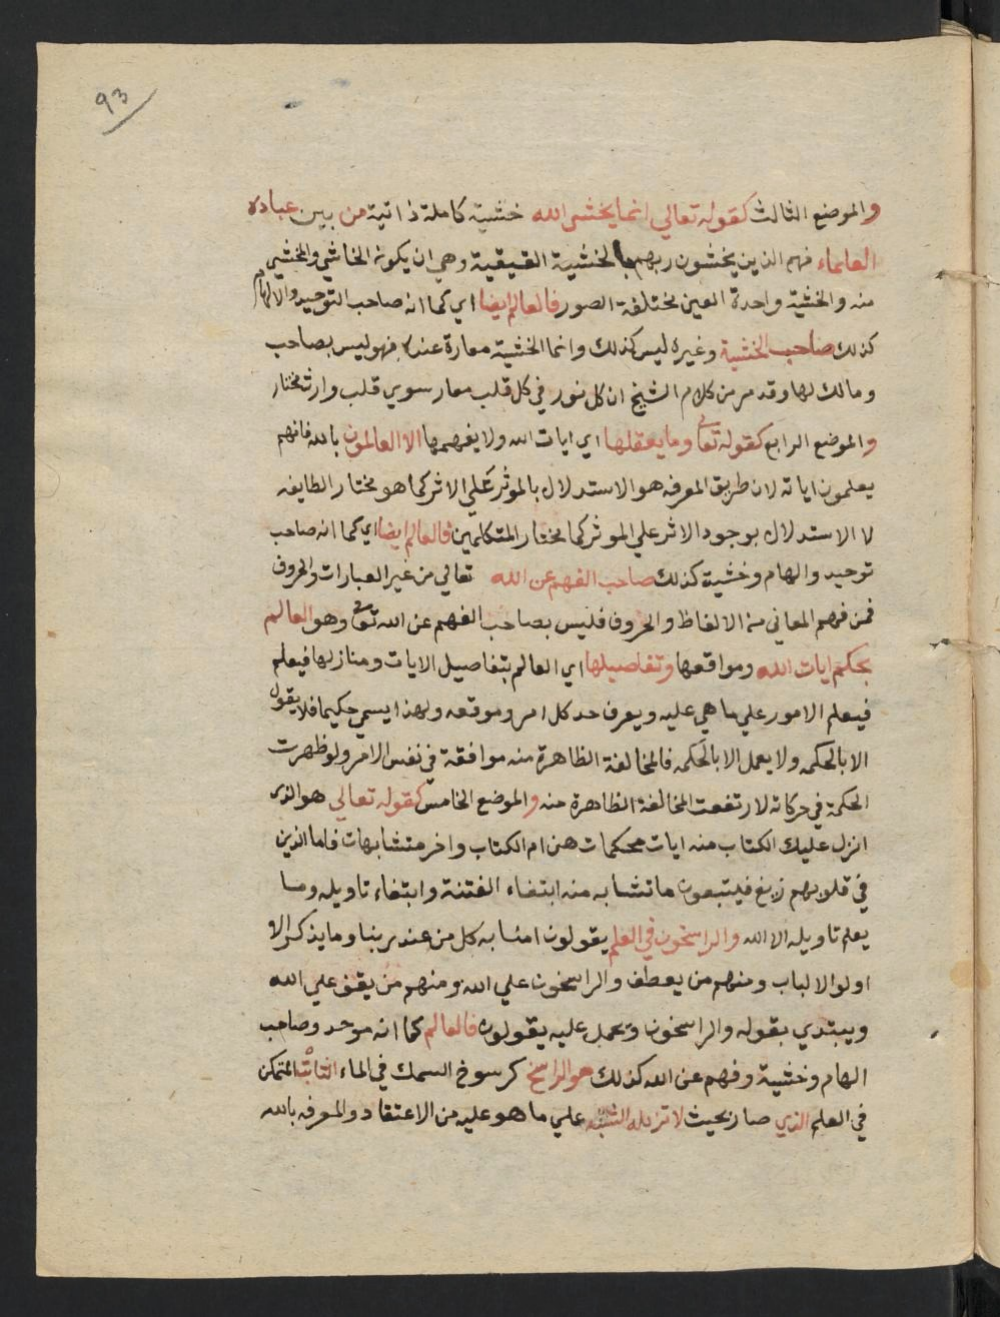 93
والموضع الثالث كقوله تعالي انما يخشي الله خشية كاملة ذاتية من بين عباده
العلماء فهم الذين يخشون ربهم بالخشية الحقيقية وهي ان يكون الخاشي والمخشي
منه والخشية واحدة العين مختلفة الصور فالعالم ايضا اي كما انه صاحب التوحيد والالهام
كذلك صاحب الخشية وغيره ليس كذلك وانما الخشية معارة عنده فهو ليس بصاحب
ومالك لها وقد مر من كلام الشيخ ان كل نور في كل قلب معار سوي قلب وارث مختار
والموضع الرابع كقوله تعالي وما يعقلها اي ايات الله ولا يفهمها الا العالمون بالله فانهم
يعلمون اياته لان طريق المعرفه هو الاستدلال بالموثر علي الاثر كما هو مختار الطايفه
لا الاستدلال بوجود الاثر علي الموثر كما مختار المتكلمين فالعالم ايضا اي كما انه صاحب
توحيد والهام وخشية كذلك صاحب الفهم عن الله تعالي من غير العبارات والحروف
فمن فهم المعاني من الالفاظ والحروف فليس بصاحب الفهم عن الله تعالي وهو العالم
بحكم ايات الله ومواقعها وتفاصيلها اي العالم بتفاصيل الايات ومنازلها فيعلم
فيعلم الامور علي ما هي عليه ويعرف حد كل امر وموقعه ولهذا يسمي حكيما فلا يقول
الا بالحكمه ولا يعمل الا بالحكمه فالمخالفة الظاهرة منه موافقة في نفس الامر ولو ظهرت
الحكمة في حركاته لارتفعت المخالفة الظاهرة منه والموضع الخامس كقوله تعالي هو الذي
انزل عليك الكتاب منه ايات محكمات هن ام الكتاب واخر متشابهات فاما الذين
في قلوبهم زيغ فيتبعون ما تشابه منه ابتغاء الفتنة وابتغاء تاويله وما
يعلم تاويله الا الله والراسخون في العلم يقولون امنا به كل من عند ربنا وما يذكر الا
اولوا الالباب ومنهم من يعطف والراسخون علي الله ومنهم من يقف علي الله
ويبتدي بقوله والراسخون ويحمل عليه يقولون فالعالم كما انه موحد وصاحب
الهام وخشية وفهم عن الله كذلك هو الراسخ كرسوخ السمك في الماء الثابت المتمكن
في العلم الذي صار بحيث لا تزيله الشبه علي ما هو عليه من الاعتقاد والمعرفه بالله